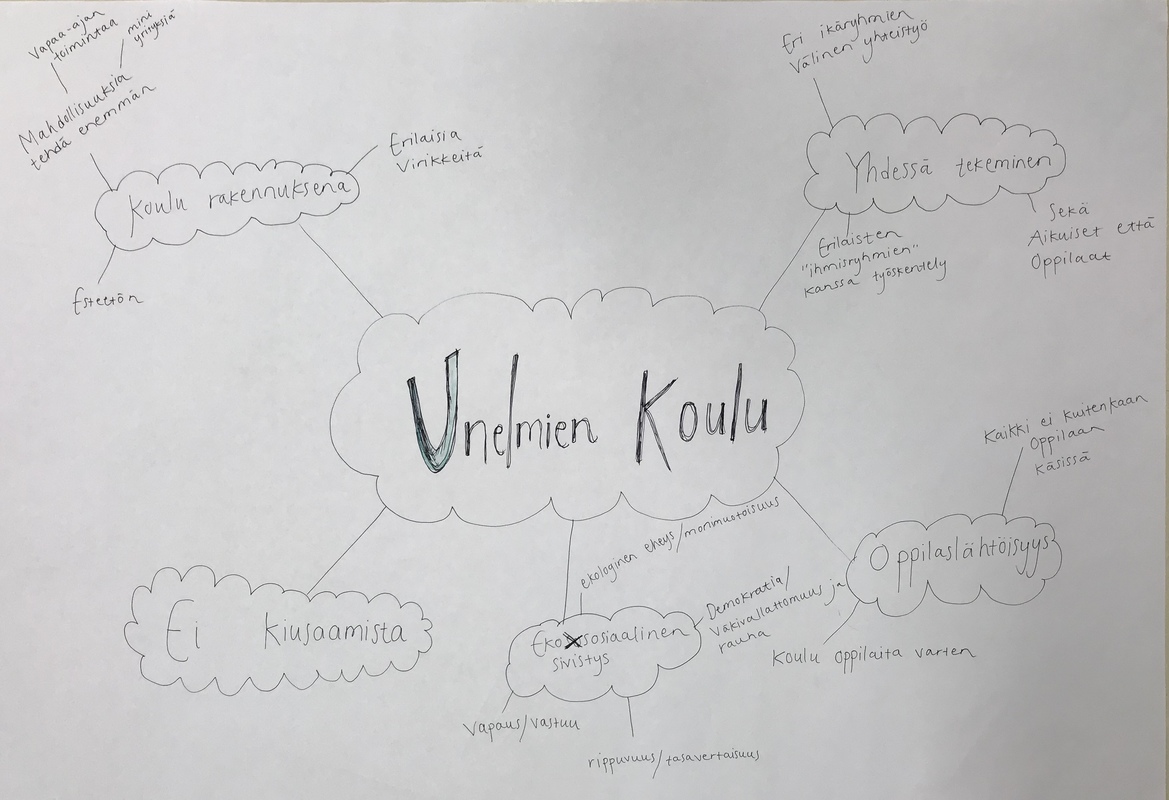 Vapaa-ajan
toimintaa
mini
yrityksiä
Mahdollisuuksia
tehdä enemmän
Koulu rakennuksena
Erilaisia
Virikkeitä
Esteetön
Eri ikäryhmien
Välinen yhteistyö
Yhdessä tekeminen
Erilaisten
"ihmisryhmien"
Kanssa työskentely
Sekä
Aikuiset että
Oppilaat
Unelmien Koulu
Kaikki ei kuitenkaan
Oppilaan
Käsissä
Oppilaslähtöisyys
Koulu Oppilaita varten
ekologinen eheys/monimuotoisuus
Ekososiaalinen
sivistys
Demokratia/
Väkivallattomuus ja
rauha
Vapaus/vastuu
rippuvuus/tasavertaisuus
Ei Kiusaamista